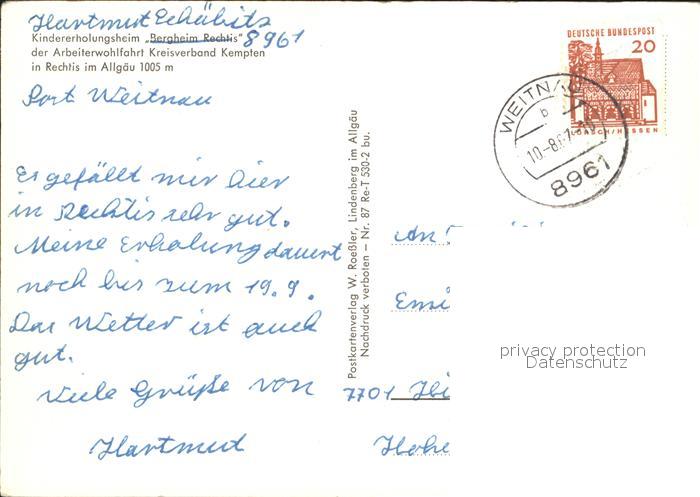 Hartmut Schäbitz
8961
Kindererholungsheim „Bergheim Rechtis"
der Arbeiterwohlfahrt Kreisverband Kempten
in Rechtis im Allgäu 1005 m
Post Weitnau
Es gefällt mir hier
in Rechtis sehr gut.
Meine Erholung dauert
noch bis zum 19.9.
Das Wetter ist auch
gut.
Viele Grüße von
Hartmut
Postkartenverlag W. Roeßler, Lindenberg im Allgäu
Nachdruck verboten – Nr. 87 Re-T 530-2 bu.
DEUTSCHE BUNDESPOST
20
LORSCH/HESSEN
WEITNAU
b
8961
An
Emi
7701
Hohe
privacy protection
Datenschutz